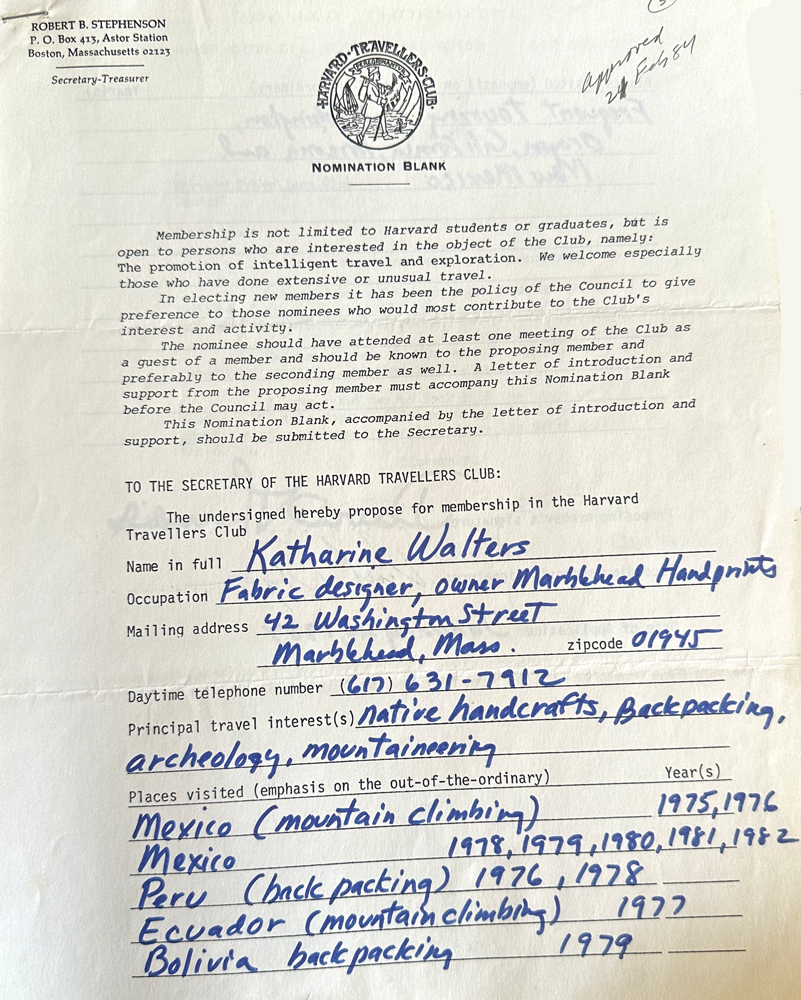 ROBERT B. STEPHENSON
P. O. Box 413, Astor Station
Boston, Massachusetts 02123
Secretary-Treasurer
3
approved
24 Feb 84
·HARVARD·TRAVELLERS·CLUB·
NOMINATION BLANK
Membership is not limited to Harvard students or graduates, but is
open to persons who are interested in the object of the Club, namely:
The promotion of intelligent travel and exploration. We welcome especially
those who have done extensive or unusual travel.
In electing new members it has been the policy of the Council to give
preference to those nominees who would most contribute to the Club's
interest and activity.
The nominee should have attended at least one meeting of the Club as
a guest of a member and should be known to the proposing member and
preferably to the seconding member as well. A letter of introduction and
support from the proposing member must accompany this Nomination Blank
before the Council may act.
This Nomination Blank, accompanied by the letter of introduction and
support, should be submitted to the Secretary.
TO THE SECRETARY OF THE HARVARD TRAVELLERS CLUB:
The undersigned hereby propose for membership in the Harvard
Travellers Club
Name in full Katharine Walters
Occupation Fabric designer, owner Marblehead Handprints
Mailing address 42 Washington Street
Marblehead, Mass. zipcode 01945
Daytime telephone number (617) 631-7912
Principal travel interest(s) native handcrafts, Backpacking,
archeology, mountaineering
Places visited (emphasis on the out-of-the-ordinary) Year(s)
Mexico (mountain climbing) 1975, 1976
Mexico 1978, 1979, 1980, 1981, 1982
Peru (back packing) 1976, 1978
Ecuador (mountain climbing) 1977
Bolivia backpacking 1979